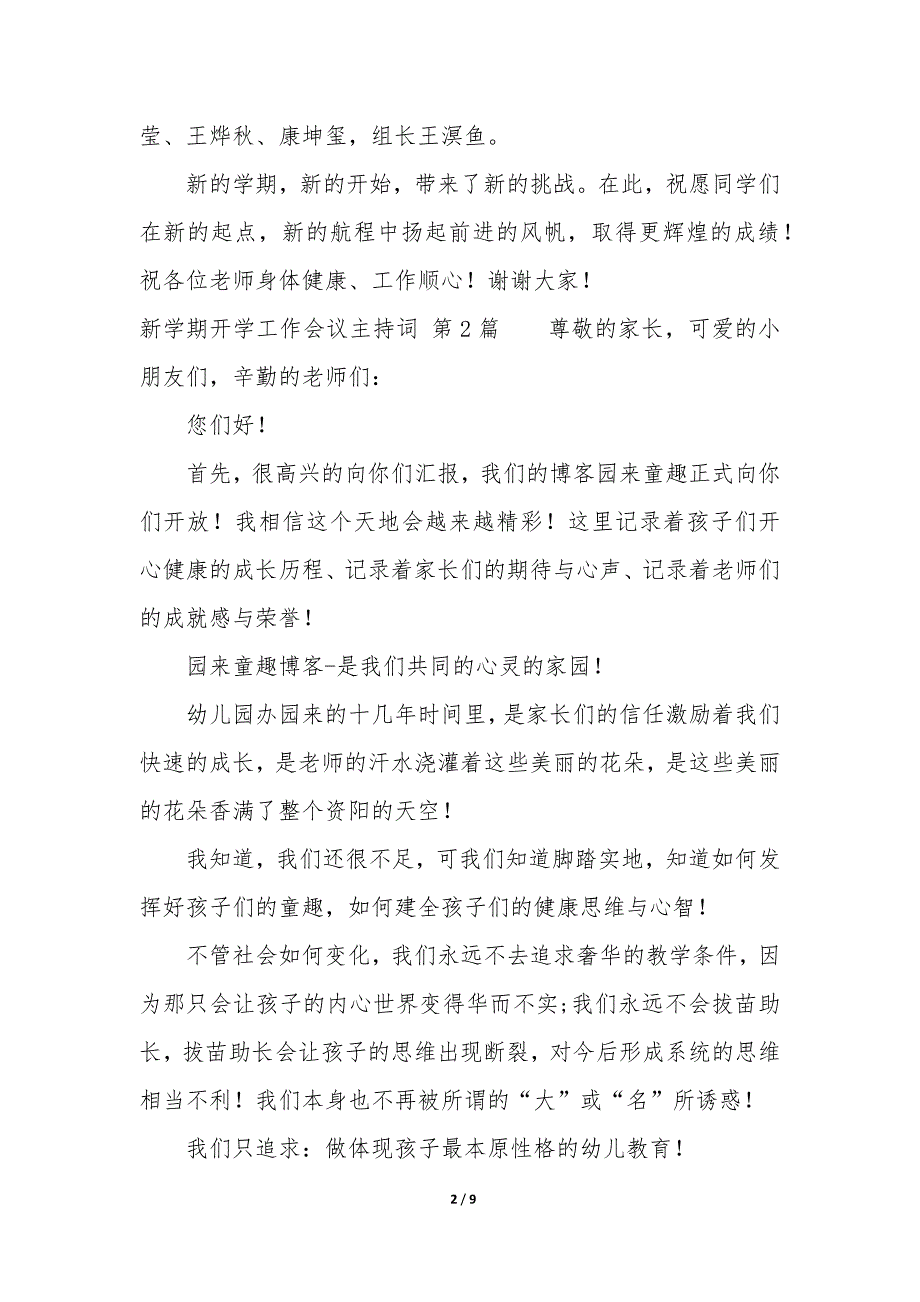 莹、王烨秋、康坤玺，组长王溟鱼。
新的学期，新的开始，带来了新的挑战。在此，祝愿同学们
在新的起点，新的航程中扬起前进的风帆，取得更辉煌的成绩！
祝各位老师身体健康、工作顺心！谢谢大家！
新学期开学工作会议主持词 第2篇　　尊敬的家长，可爱的小
朋友们，辛勤的老师们：
您们好！
首先，很高兴的向你们汇报，我们的博客园来童趣正式向你
们开放！我相信这个天地会越来越精彩！这里记录着孩子们开
心健康的成长历程、记录着家长们的期待与心声、记录着老师们
的成就感与荣誉！
园来童趣博客-是我们共同的心灵的家园！
幼儿园办园来的十几年时间里，是家长们的信任激励着我们
快速的成长，是老师的汗水浇灌着这些美丽的花朵，是这些美丽
的花朵香满了整个资阳的天空！
我知道，我们还很不足，可我们知道脚踏实地，知道如何发
挥好孩子们的童趣，如何建全孩子们的健康思维与心智！
不管社会如何变化，我们永远不去追求奢华的教学条件，因
为那只会让孩子的内心世界变得华而不实;我们永远不会拔苗助
长，拔苗助长会让孩子的思维出现断裂，对今后形成系统的思维
相当不利！我们本身也不再被所谓的“大”或“名”所诱惑！
我们只追求：做体现孩子最本原性格的幼儿教育！
2 / 9